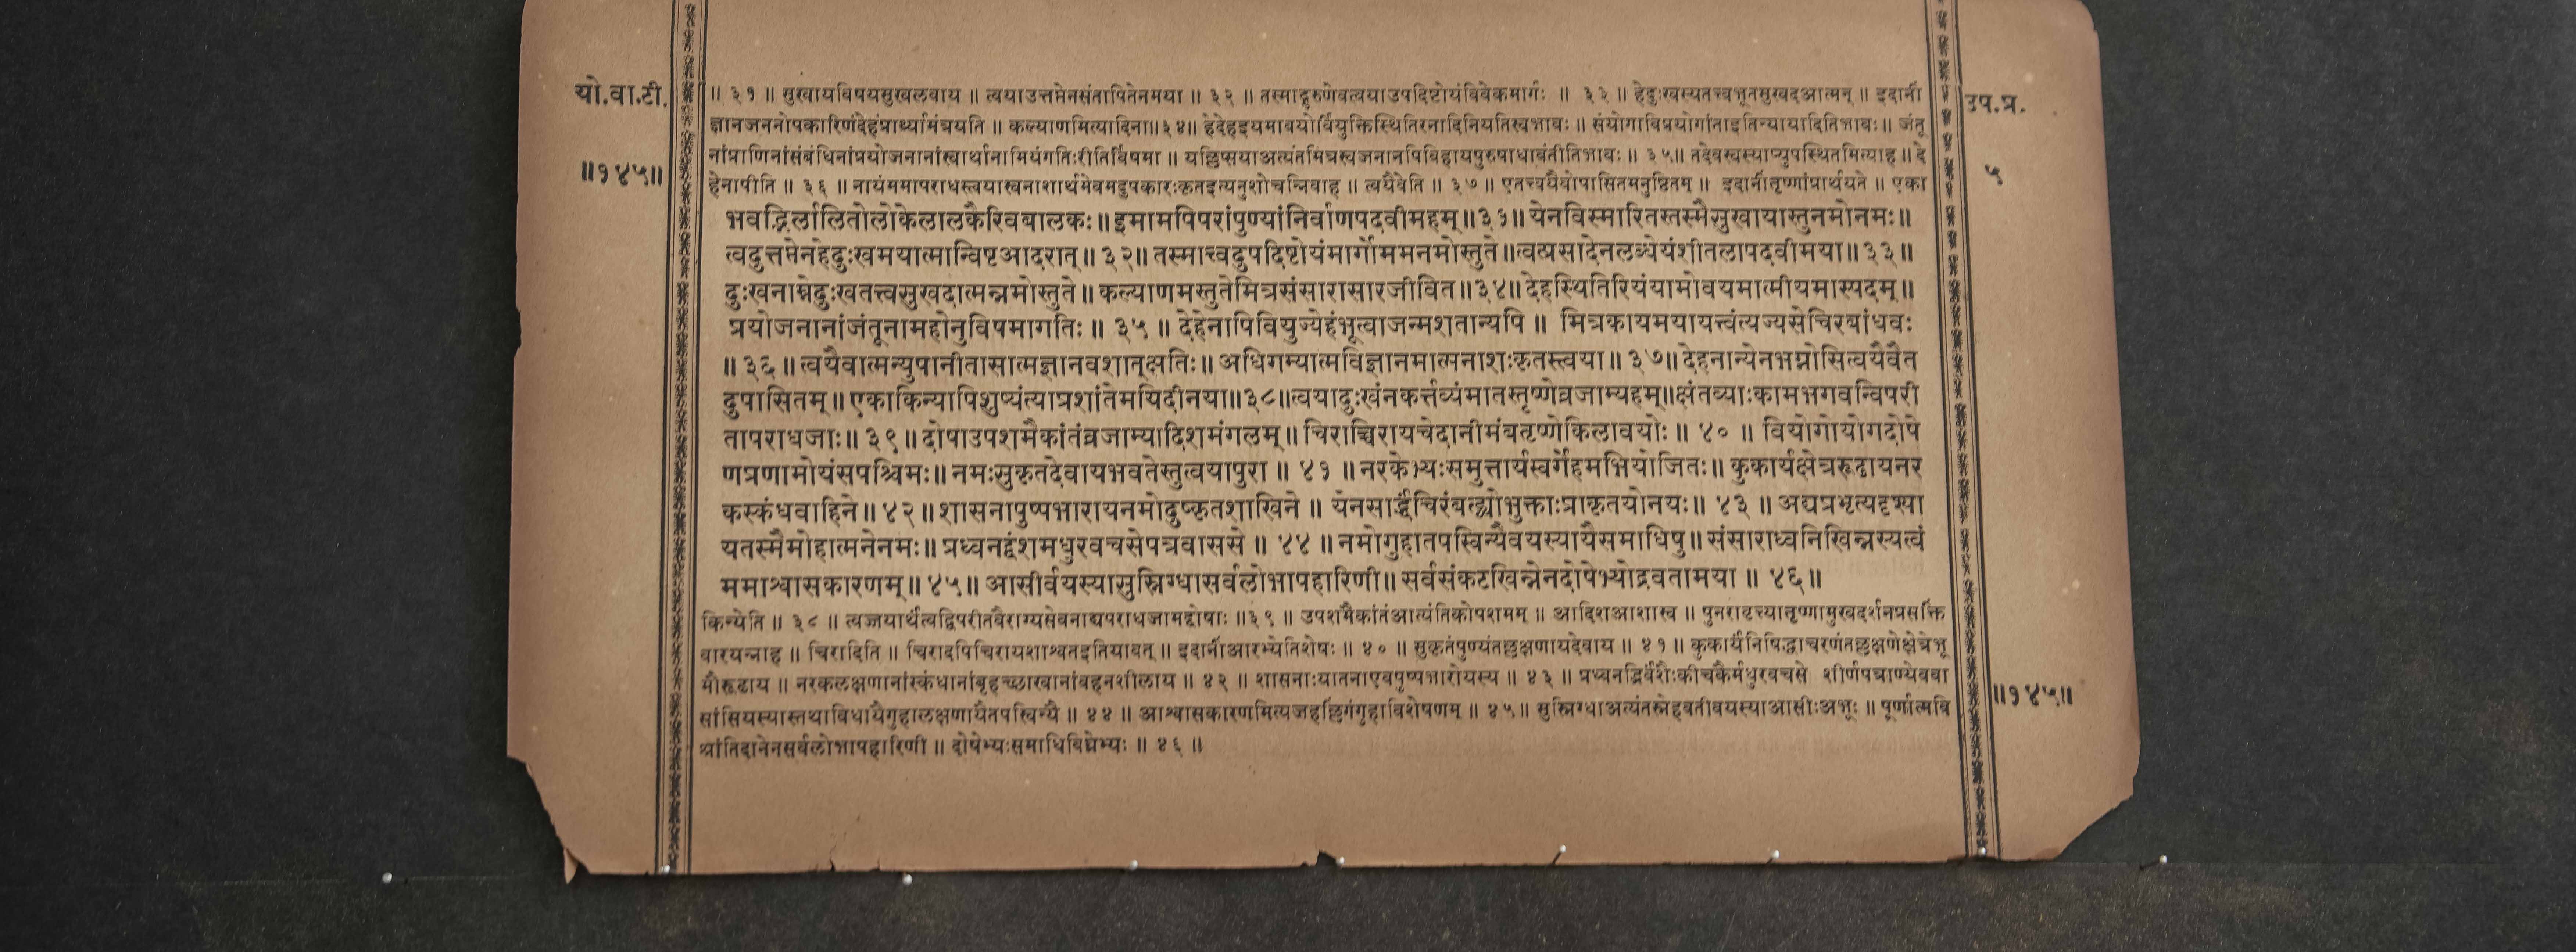 यो.वा.टी.
॥१४५॥
॥ ३१ ॥ सुखायविषयसुखलवाय ॥ त्वयाउत्तप्तेनसंतापितेनमया ॥ ३२ ॥ तस्माद्गुरुणेवत्वयाउपदिष्टोयंविवेकमार्गः ॥ ३३ ॥ हेदुःखस्यतत्त्वभूतसुखदआत्मन् ॥ इदानीं
ज्ञानजननोपकारिणंदेहंप्रार्थ्यामंत्रयति ॥ कल्याणमित्यादिना॥३४॥ हेदेहइयमावयोर्वियुक्तिस्थितिरनादिनियतिस्वभावः ॥ संयोगाविप्रयोगांताइतिन्यायादितिभावः॥ जंतू
नांप्राणिनांसंबंधिनांप्रयोजनानांस्वार्थानामियंगतिःरीतिर्विषमा ॥ यल्लिप्सयाअत्यंतमित्रस्वजनानपिविहायपुरुषाधावंतीतिभावः ॥ ३५॥ तदेवस्वस्याप्युपस्थितमित्याह ॥ दे
हेनापीति ॥ ३६ ॥ नायंममापराधस्त्वयास्वनाशार्थमेवमदुपकारःकृतइत्यनुशोचन्निवाह ॥ त्वयैवेति ॥ ३७ ॥ एतत्त्वयैवोपासितमनुष्ठितम् ॥ इदानींतृष्णांप्रार्थयते ॥ एका
भवद्भिर्लालितोलोकेलालकैरिवबालकः॥ इमामपिपरांपुण्यांनिर्वाणपदवीमहम्॥३१॥ येनविस्मारितस्तस्मैसुखायास्तुनमोनमः॥
त्वदुत्तप्तेनहेदुःखमयात्मान्विष्टआदरात्॥ ३२॥ तस्मात्त्वदुपदिष्टोयंमार्गोममनमोस्तुते॥त्वत्प्रसादेनलब्धेयंशीतलापदवीमया॥ ३३॥
दुःखनाम्नेदुःखतत्त्वसुखदात्मन्नमोस्तुते॥ कल्याणमस्तुतेमित्रसंसारासारजीवित॥३४॥ देहस्थितिरियंयामोवयमात्मीयमास्पदम्॥
प्रयोजनानांजंतूनामहोनुविषमागतिः॥ ३५ ॥ देहेनापिवियुज्येहंभूत्वाजन्मशतान्यपि ॥ मित्रकायमयायत्त्वंत्यज्यसेचिरबांधवः
॥ ३६ ॥ त्वयैवात्मन्युपानीतासात्मज्ञानवशात्क्षतिः॥ अधिगम्यात्मविज्ञानमात्मनाशःकृतस्त्वया॥ ३७॥ देहनान्येनभग्नोसित्वयैवैत
दुपासितम्॥ एकाकिन्यापिशुष्यंत्याप्रशांतेमयिदीनया॥३८॥त्वयादुःखंनकर्त्तव्यंमातस्तृष्णेव्रजाम्यहम्॥क्षंतव्याःकामभगवन्विपरी
तापराधजाः॥ ३९॥ दोषाउपशमैकांतंव्रजाम्यादिशमंगलम्॥ चिराच्चिरायचेदानीमंबतृष्णेकिलावयोः॥ ४० ॥ वियोगोयोगदोषे
णप्रणामोयंसपश्चिमः॥ नमःसुकृतदेवायभवतेस्तुत्वयापुरा ॥ ४१ ॥ नरकेभ्यःसमुत्तार्यस्वर्गेहमभियोजितः॥ कुकार्यक्षेत्ररूढायनर
कस्कंधवाहिने॥ ४२॥ शासनापुष्पभारायनमोदुष्कृतशाखिने ॥ येनसार्द्धंचिरंबह्व्योभुक्ताःप्राकृतयोनयः॥ ४३ ॥ अद्यप्रभृत्यदृश्या
यतस्मैमोहात्मनेनमः॥ प्रध्वनद्वंशमधुरवचसेपत्रवाससे ॥ ४४ ॥ नमोगुहातपस्विन्यैवयस्यायैसमाधिषु॥ संसाराध्वनिखिन्नस्यत्वं
ममाश्वासकारणम्॥ ४५॥ आसीर्वयस्यासुस्निग्धासर्वलोभापहारिणी॥ सर्वसंकटखिन्नेनदोषेभ्योद्रवतामया ॥ ४६॥
किन्येति ॥ ३८ ॥ त्वज्जयार्थंत्वद्विपरीतवैराग्यसेवनाद्यपराधजामद्दोषाः ॥३९ ॥ उपशमैकांतंआत्यंतिकोपशमम् ॥ आदिशआशास्व ॥ पुनरावृत्त्यातृष्णामुखदर्शनप्रसक्तिं
वारयन्नाह ॥ चिरादिति ॥ चिरादपिचिरायशाश्वतइतियावत् ॥ इदानींआरभ्येतिशेषः ॥ ४० ॥ सुकृतंपुण्यंतल्लक्षणायदेवाय ॥ ४१ ॥ कुकार्यंनिषिद्धाचरणंतल्लक्षणेक्षेत्रेभू
मौरूढाय ॥ नरकलक्षणानांस्कंधानांबृहच्छाखानांवहनशीलाय ॥ ४२ ॥ शासनाःयातनाएवपुष्पभारोयस्य ॥ ४३ ॥ प्रध्वनद्भिर्वंशैःकीचकैर्मधुरवचसे शीर्णपत्राण्येववा
सांसियस्यास्तथाविधायैगुहालक्षणायैतपस्विन्यै ॥ ४४ ॥ आश्वासकारणमित्यजहल्लिंगंगुहाविशेषणम् ॥ ४५॥ सुस्निग्धाअत्यंतस्नेहवतीवयस्याआसीःअभूः ॥ पूर्णात्मवि
श्रांतिदानेनसर्वलोभापहारिणी ॥ दोषेभ्यःसमाधिविघ्नेभ्यः ॥ ४६ ॥
उप.प्र.
५
॥१४५॥